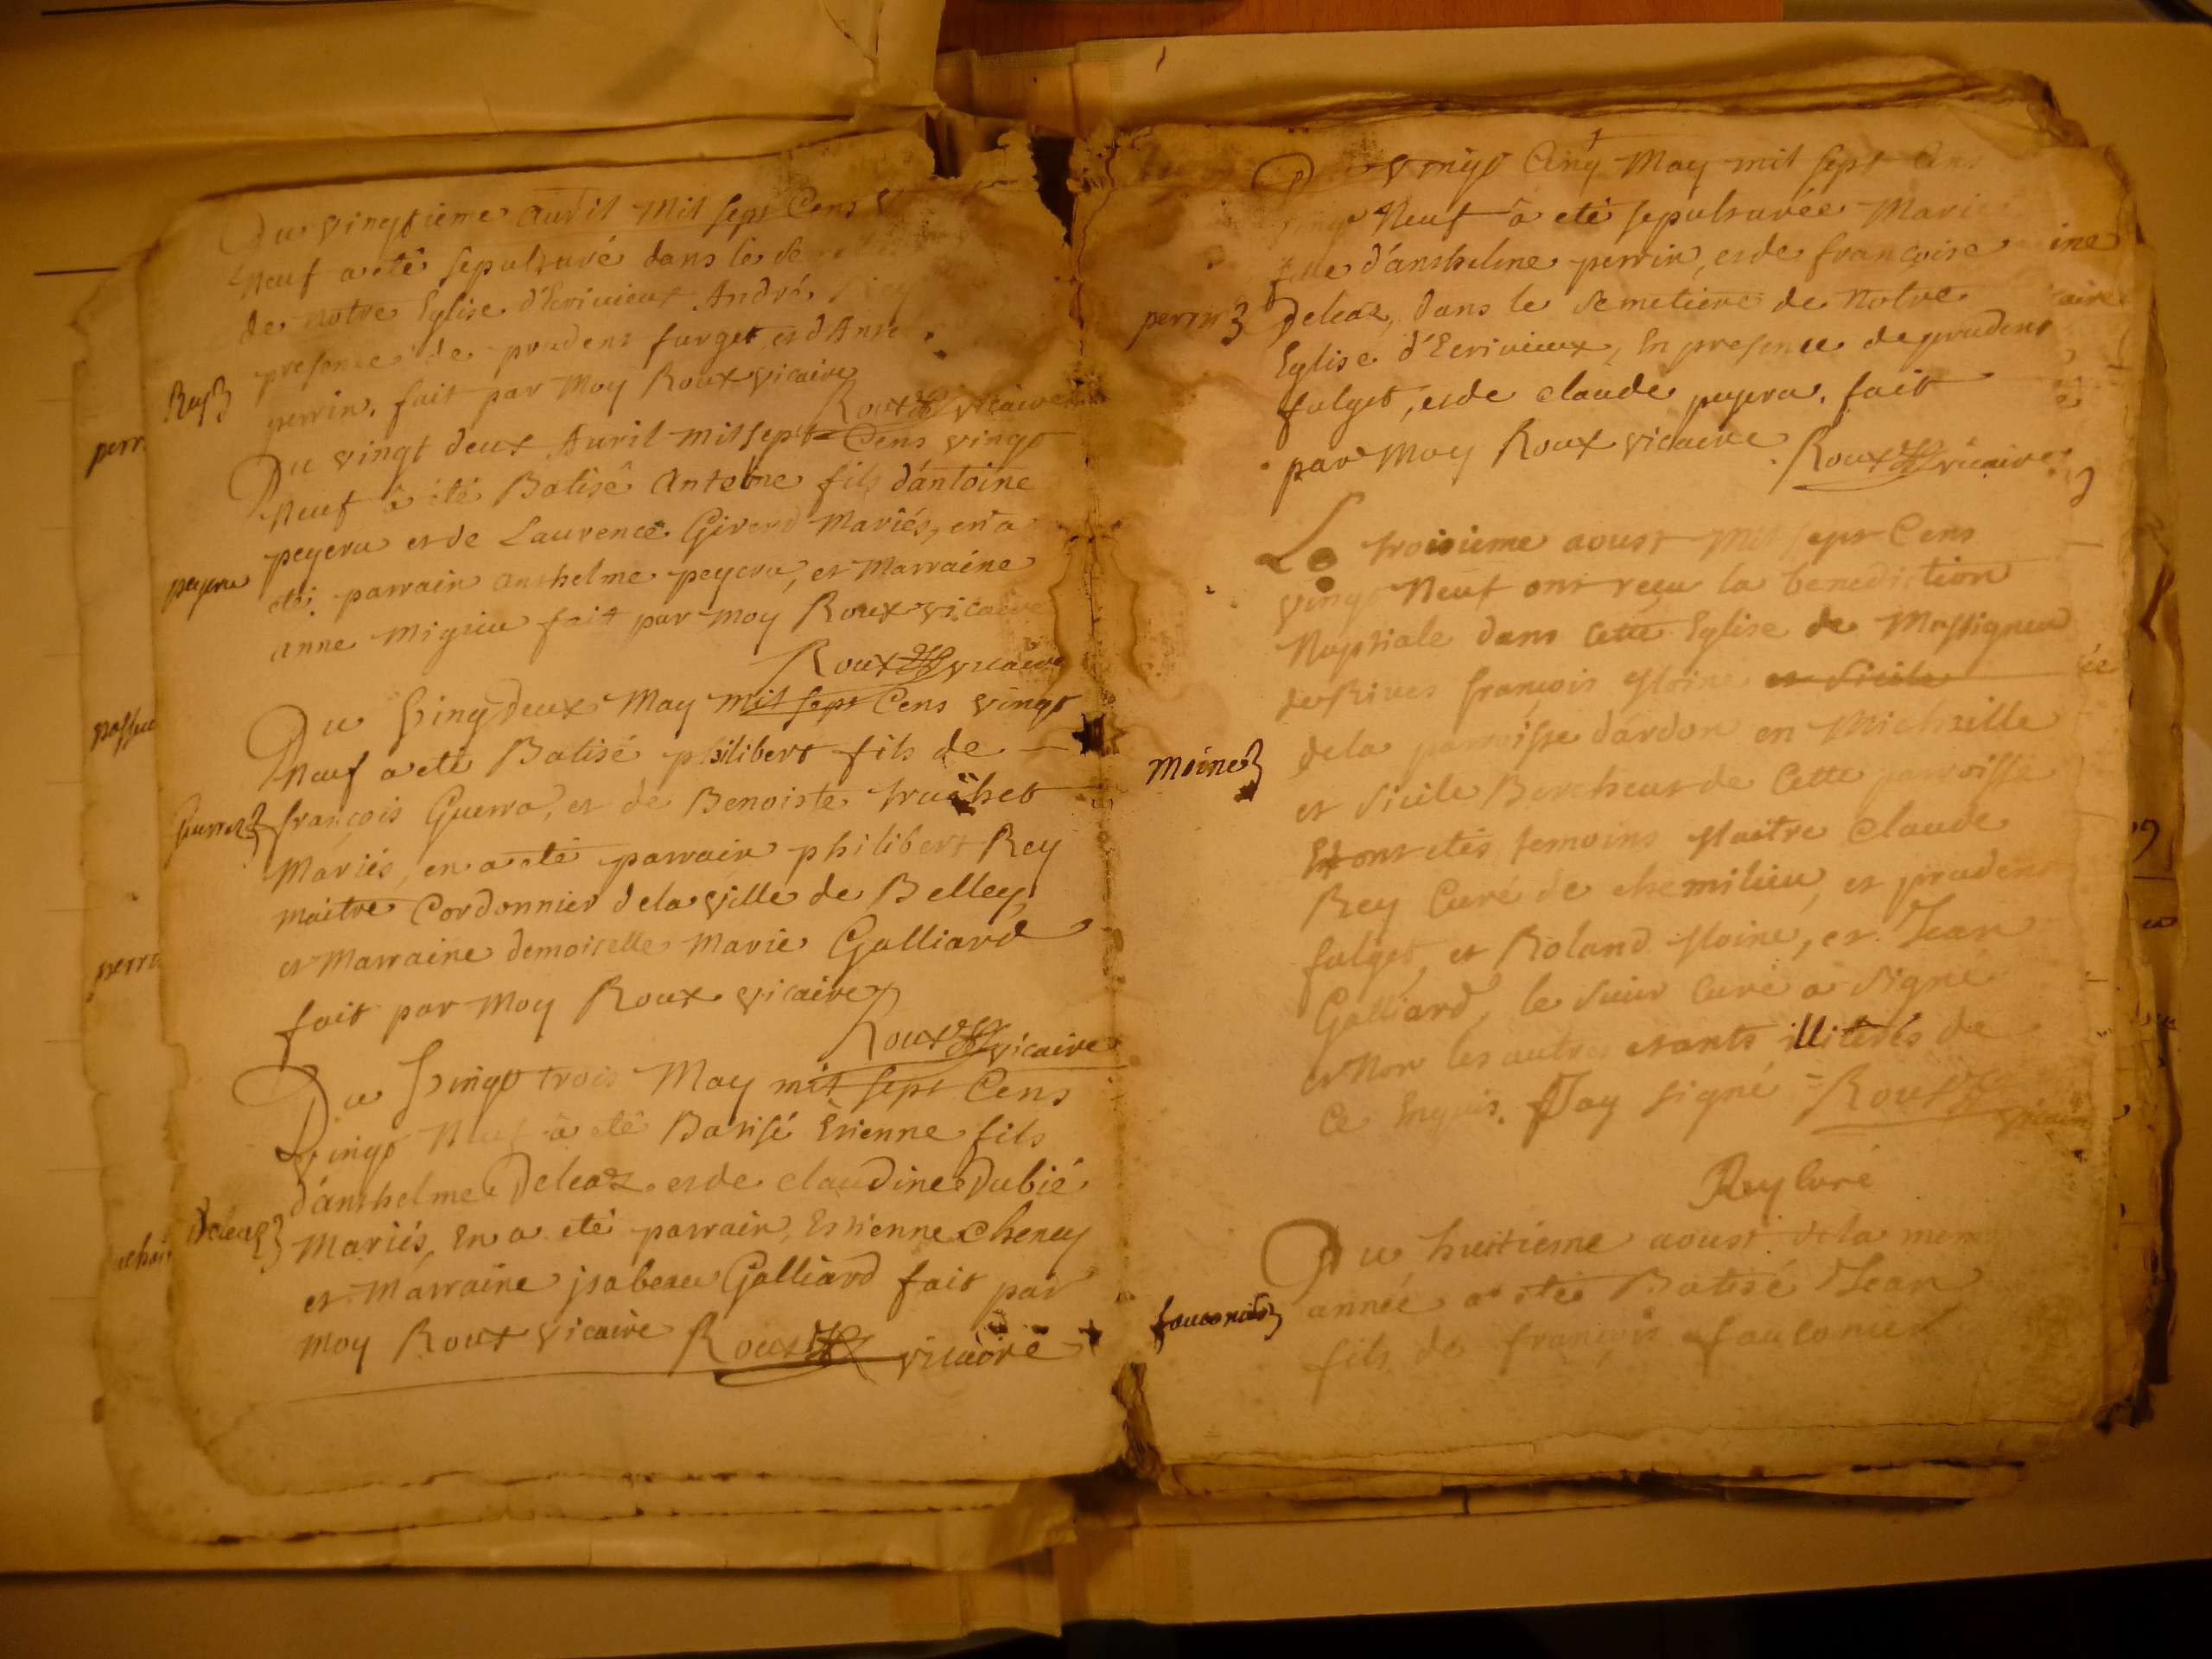 Du vingtieme auvil Mil sept Cens
Neuf a eté sepulturé dans le
de notre Eglise d'Ecrivieux André
presence de prudent furget et d'Ansel
Rey
perrin. fait par Moy Roux vicaire
Roux vicaire
Du vingt deux Avril mil sept Cens vingt
Neuf à été Batisé Antoine fils d'antoine
peyeru et de Laurence Girerd Mariés, en a
peyeru
eté parrain anthelme peyeru, et Marraine
anne Migieu fait par moy Roux vicaire
Roux vicaire
Du vingt Deux May mil sept Cens vingt
Neuf a eté Batisé philibert fils de
françois Guerra, et de Benoiste truchet
Mariés, en a eté parrain philibert Rey
maitre Cordonnier de la ville de Belley
et Marraine demoiselle Marie Galliard
fait par Moy Roux vicaire
Roux vicaire
Du vingt trois May mil sept Cens
vingt Neuf à eté Batisé Etienne fils
d'anthelme Deleaz et de claudine Dubié
Deleaz
Mariés, En a eté parrain, Estienne Cheney
et Marraine jsabeau Galliard fait par
moy Roux vicaire Roux vicaire
Du vingt Cinq May mil sept Cens
vingt Neuf à eté sepulturée Marie
fille d'anthelme perrin, et de françoise
perrin
Deleaz, dans le Semetiere de Notre
Eglise d'Ecrivieux, En presence de prudent
fulget, et de claude peyeru. fait
par Moy Roux vicaire. Roux vicaire
Le troisieme aoust Mil sept Cens
vingt Neuf ont reçu la benediction
Nuptiale dans cette Eglise de Massigneu
de Rives françois Moine et Sicile
de la parroisse d'ardon en Michaille
Moine
et Sicile Bercheut de Cette parroisse
Et ont etés temoins Maitre Claude
Rey Curé de chemilieu, et prudent
fulget, et Roland Moine, et Jean
Galliard, le sieur Curé à Signé
et Non les autres etants illiterés de
Ce Enquis. J'ay signé Roux vicaire
Rey Curé
Du huitieme aoust de la meme
année a eté Batisé Jean
fils de françois